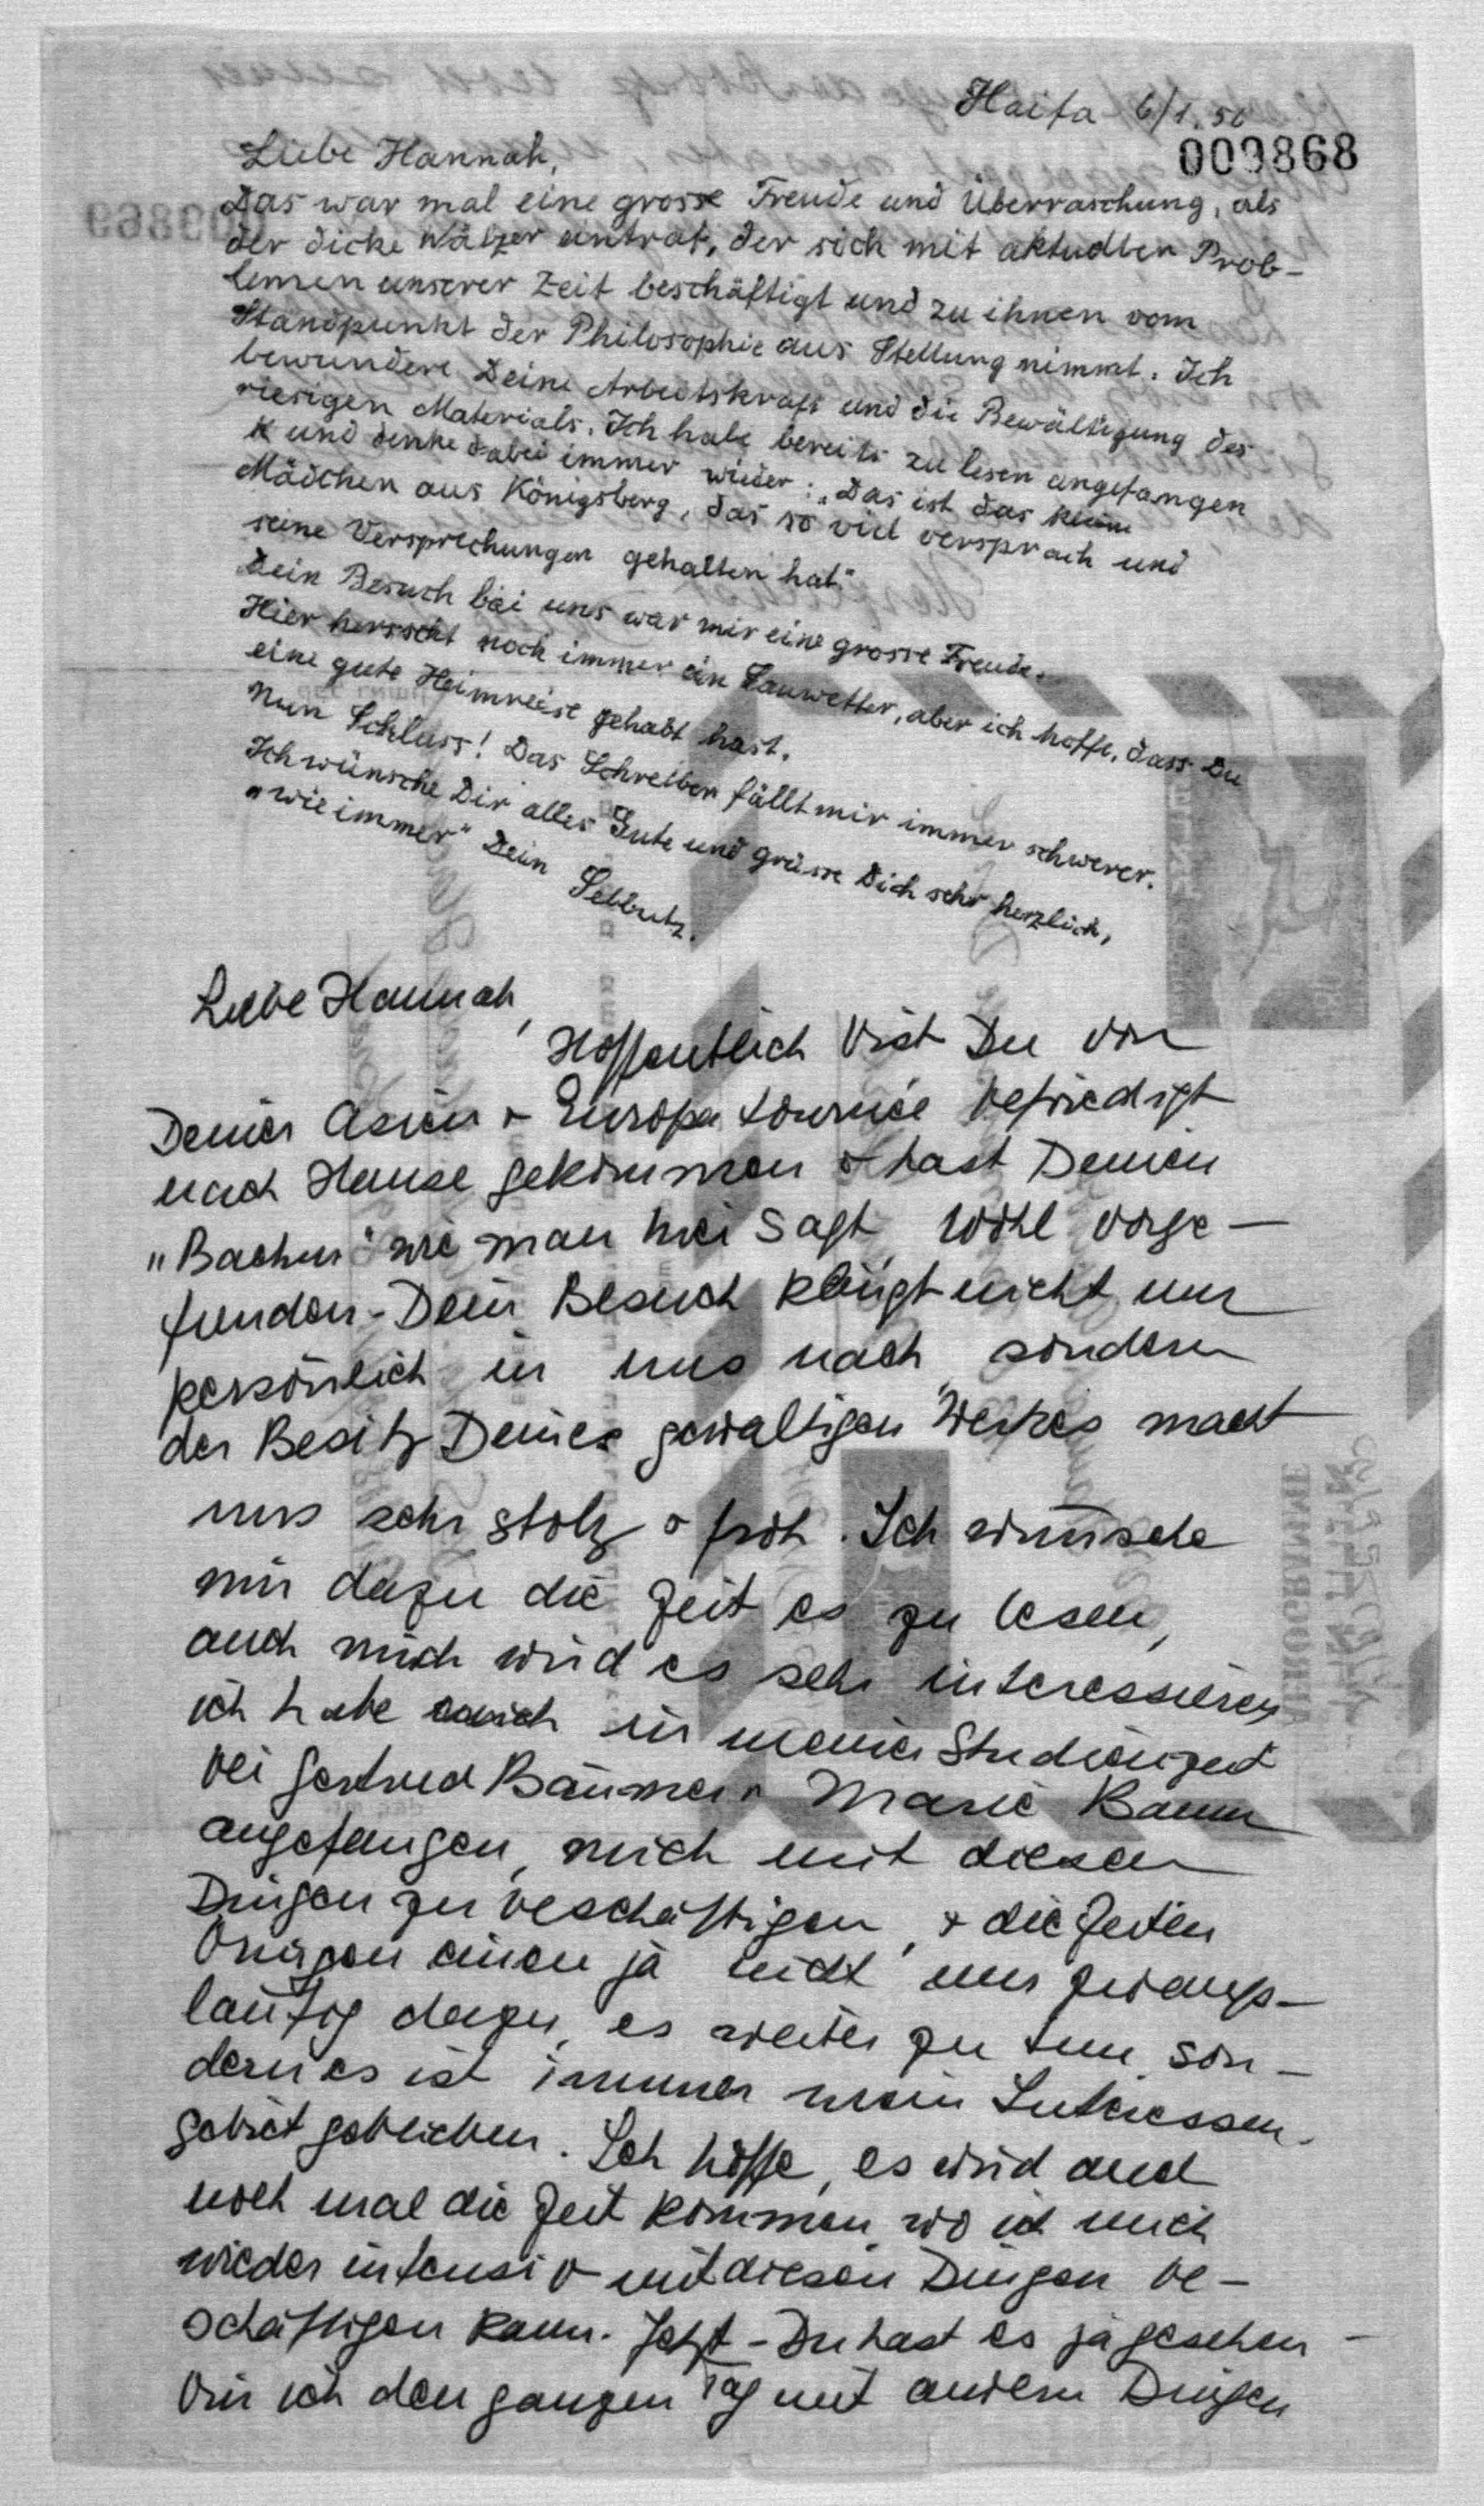 Haifa 6/1.56
009868
Liebe Hannah,
Das war mal eine grosse Freude und Überraschung, als
der dicke Wälzer antrat, der sich mit aktuellen Prob-
lemen unserer Zeit beschäftigt und zu ihnen vom
Standpunkt der Philosophie aus Stellung nimmt. Ich
bewundere Deine Arbeitskraft und die Bewältigung des
riesigen Materials. Ich habe bereits zu lesen angefangen
und denke dabei immer wieder: „Das ist das kleine
Mädchen aus Königsberg, das so viel versprach und
seine Versprechungen gehalten hat."
Dein Besuch bei uns war mir eine grosse Freude.
Hier herrscht noch immer ein Sauwetter, aber ich hoffe, dass Du
eine gute Heimreise gehabt hast.
Nun Schluss! Das Schreiben fällt mir immer schwerer.
Ich wünsche Dir alles Gute und grüsse Dich sehr herzlich,
„wie immer" Dein
Liebe Hannah,
Hoffentlich bist Du von
Deiner Asien + Europa tournée befriedigt
nach Hause gekommen + hast Deinen
„Bachur" wie man hier sagt, wohl vorge-
funden - Dein Besuch klingt nicht nur
persönlich in uns nach, sondern
der Besitz Deines gewaltigen Werkes macht
uns sehr stolz + froh. Ich wünsche
mir dazu die Zeit es zu lesen,
auch mich wird es sehr interessieren
ich habe auch in meiner Studienzeit
bei Gertrud Bäumer + Marie Baum
angefangen, mich mit diesen
Dingen zu beschäftigen, + die Zeiten
bringen einen ja nicht nur zwangs-
läufig dazu, es weiter zu tun, son-
dern es ist immer mein Interessen-
gebiet geblieben. Ich hoffe, es wird auch
noch mal die Zeit kommen, wo ich mich
wieder intensiv mit diesen Dingen be-
schäftigen kann. Jetzt - Du hast es ja gesehen -
bin ich den ganzen Tag mit andern Dingen